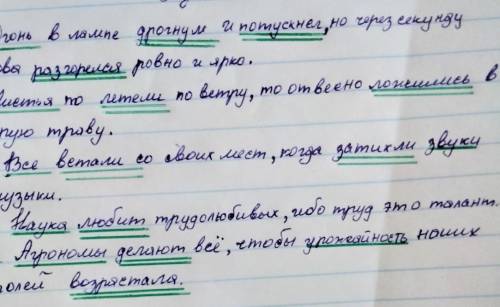 гонь в лампе дрогнул и потускнел, но через секунду
ва разгорелся ровно и ярко.
Листья то летели по ветру, то отвесно ложились в
рую траву.
Все встали со своих мест, когда затихли звуки
узыки.
Наука любит трудолюбивых, ибо труд это талант.
Агрономы делают всё, чтобы урожайность наших
полей возрастала.